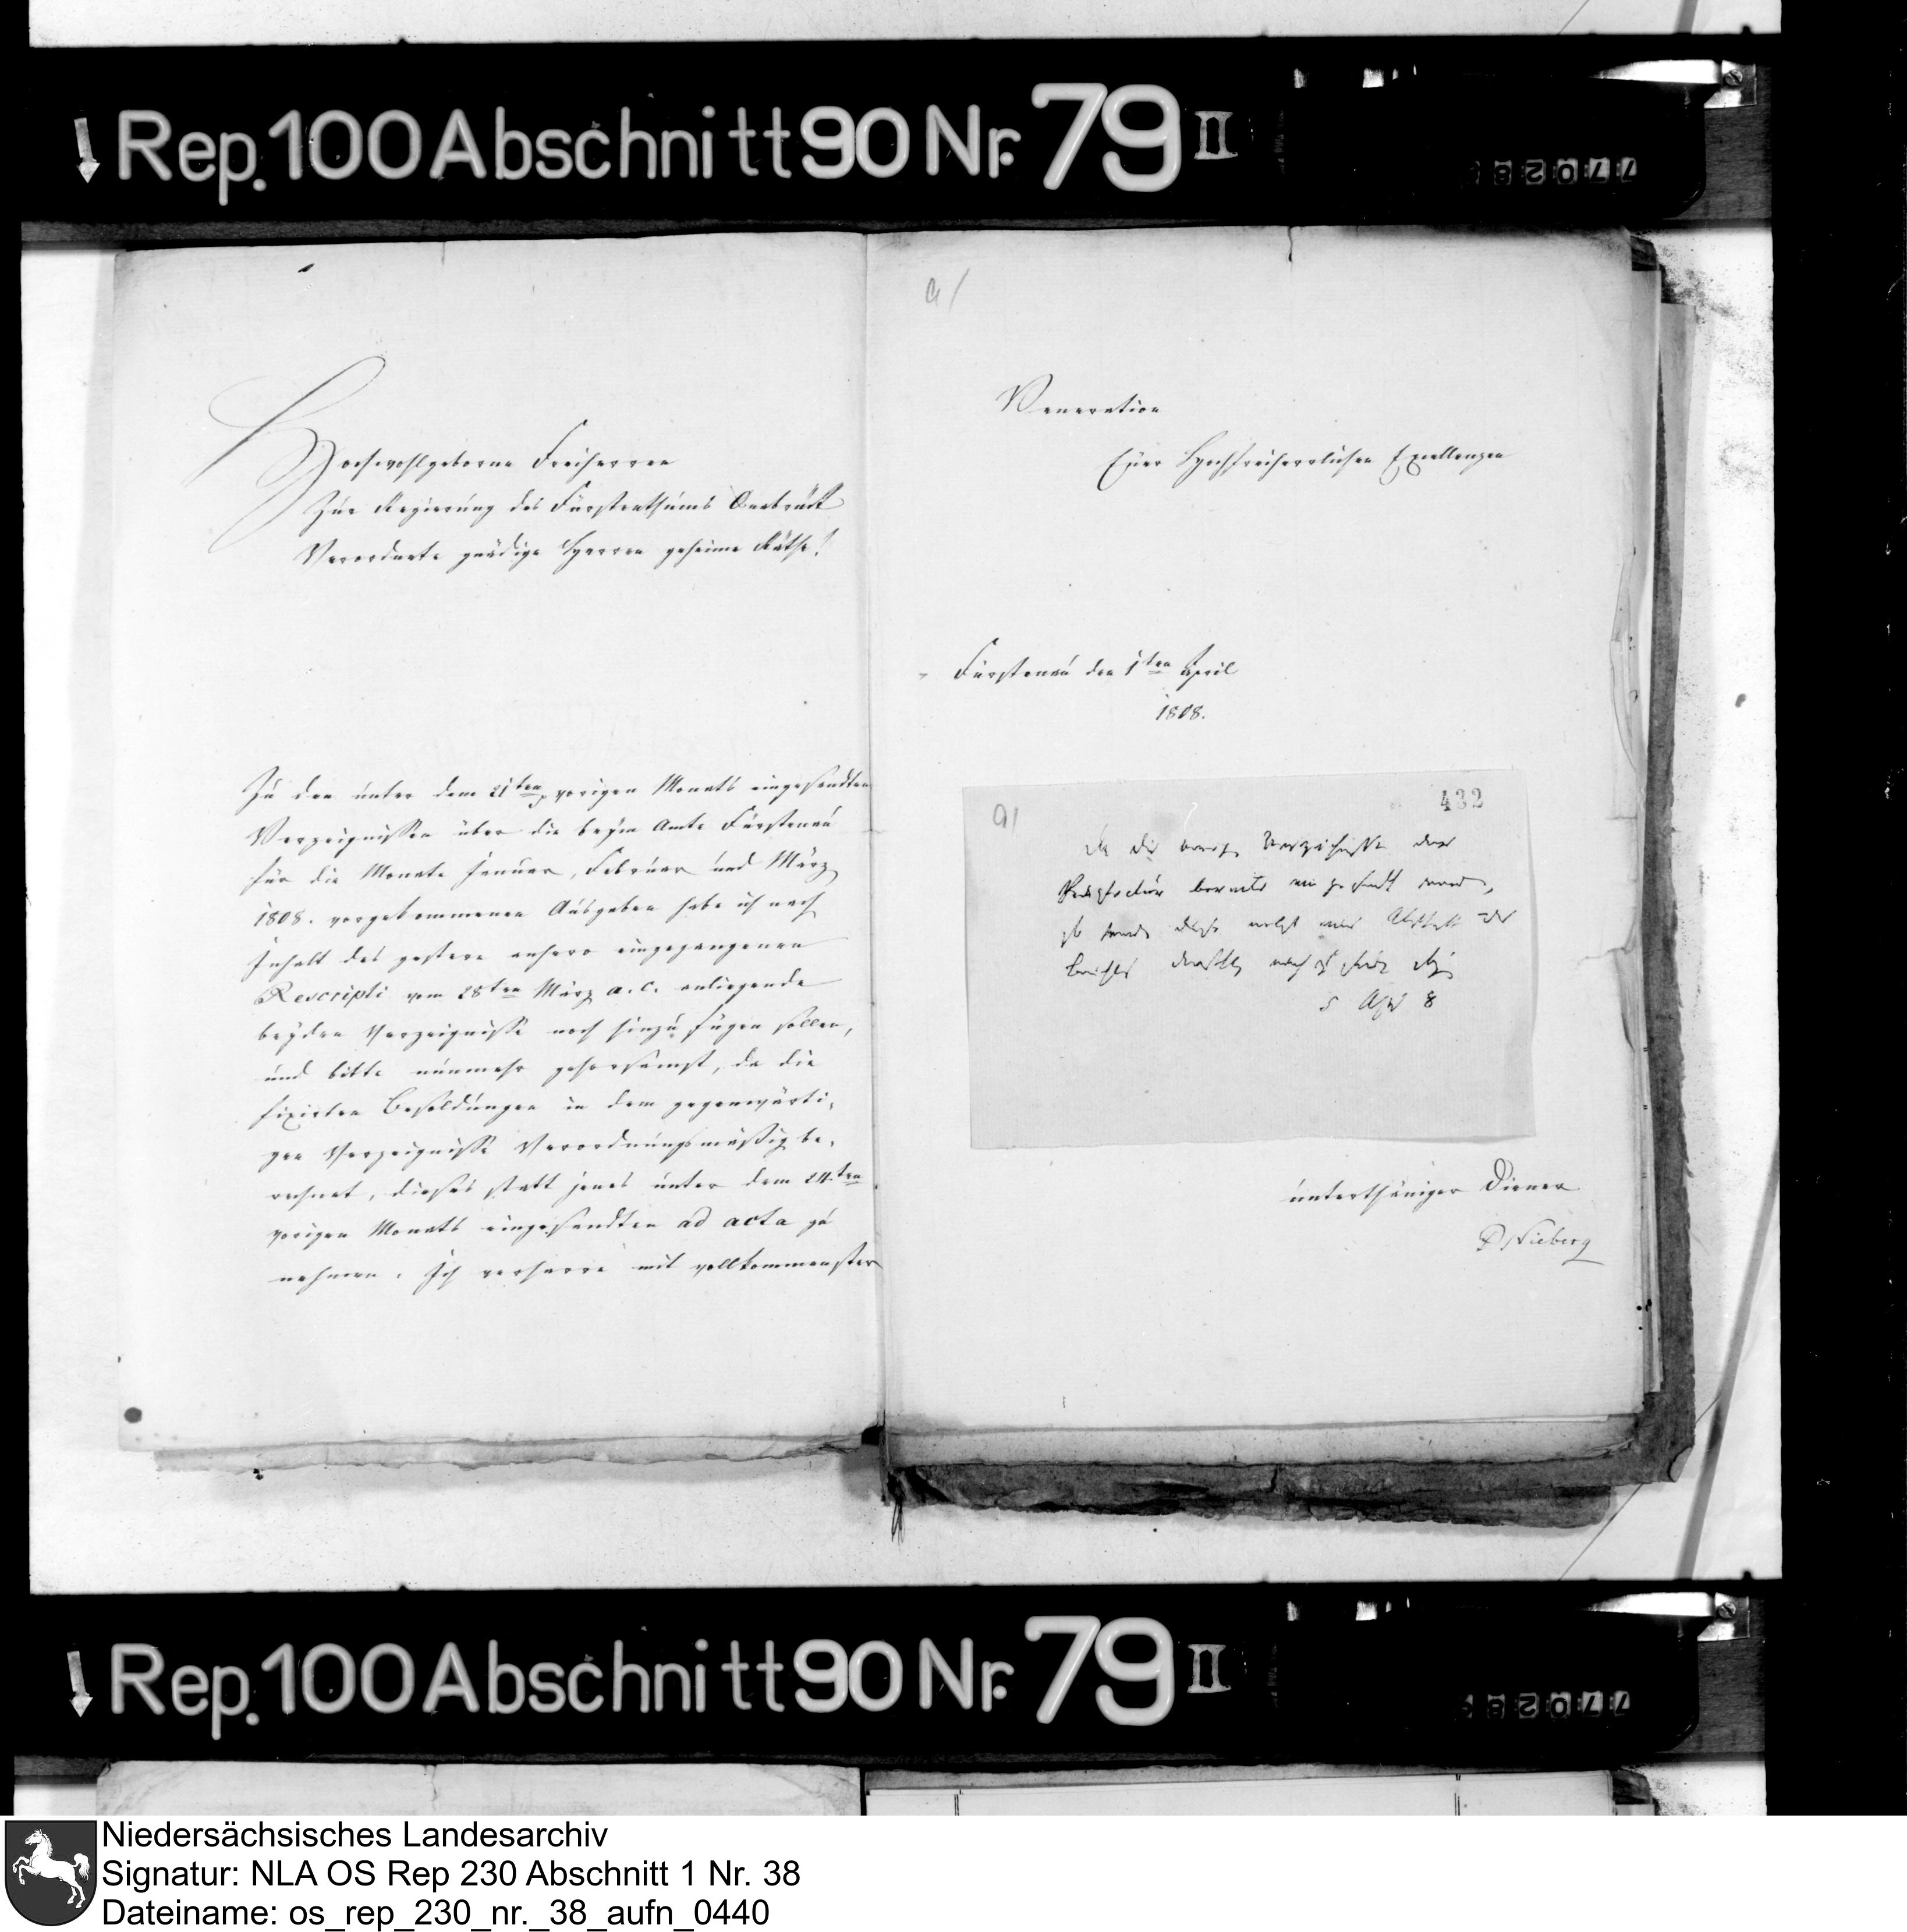 Rep. 100 Abschnitt 90 Nr. 79 II
77028
Hochwohlgeborne Freiherren
Zur Regierung des Fürstenthums Osnabrück
Verordnete gnädige Herren geheime Räthe!
Zu den unter dem 21ten vorigen Monats eingesandten
Verzeignissen über die beym Amte Fürstenau
für die Monate Januar, Februar und März
1808. vorgekommenen Ausgaben habe ich nach
Inhalt des gestern anhero eingegangenen
Rescripti vom 28ten März a. c. anliegende
beyden Verzeignisse noch hinzu fügen sollen,
und bitte nunmehr gehorsamst, da die
fixirten Besoldungen in dem gegenwärti-
gen Verzeignisse Verordnungsmäßig be-
rechnet, dieses statt jenes unter dem 24ten
vorigen Monats eingesandten ad acta zu
nehmen. Ich verharre mit vollkommenster
a/
Veneration
Euer Hochfreiherrlichen Excellenzen
Fürstenau den 1ten April
1808.
a/
432
da die Verzeichniße der
bereits eingesandt
so
Berichts
5 Apr 8
unterthäniger Diener
Nieberg
Rep. 100 Abschnitt 90 Nr. 79 II
77028
Niedersächsisches Landesarchiv
Signatur: NLA OS Rep 230 Abschnitt 1 Nr. 38
Dateiname: os_rep_230_nr._38_aufn_0440